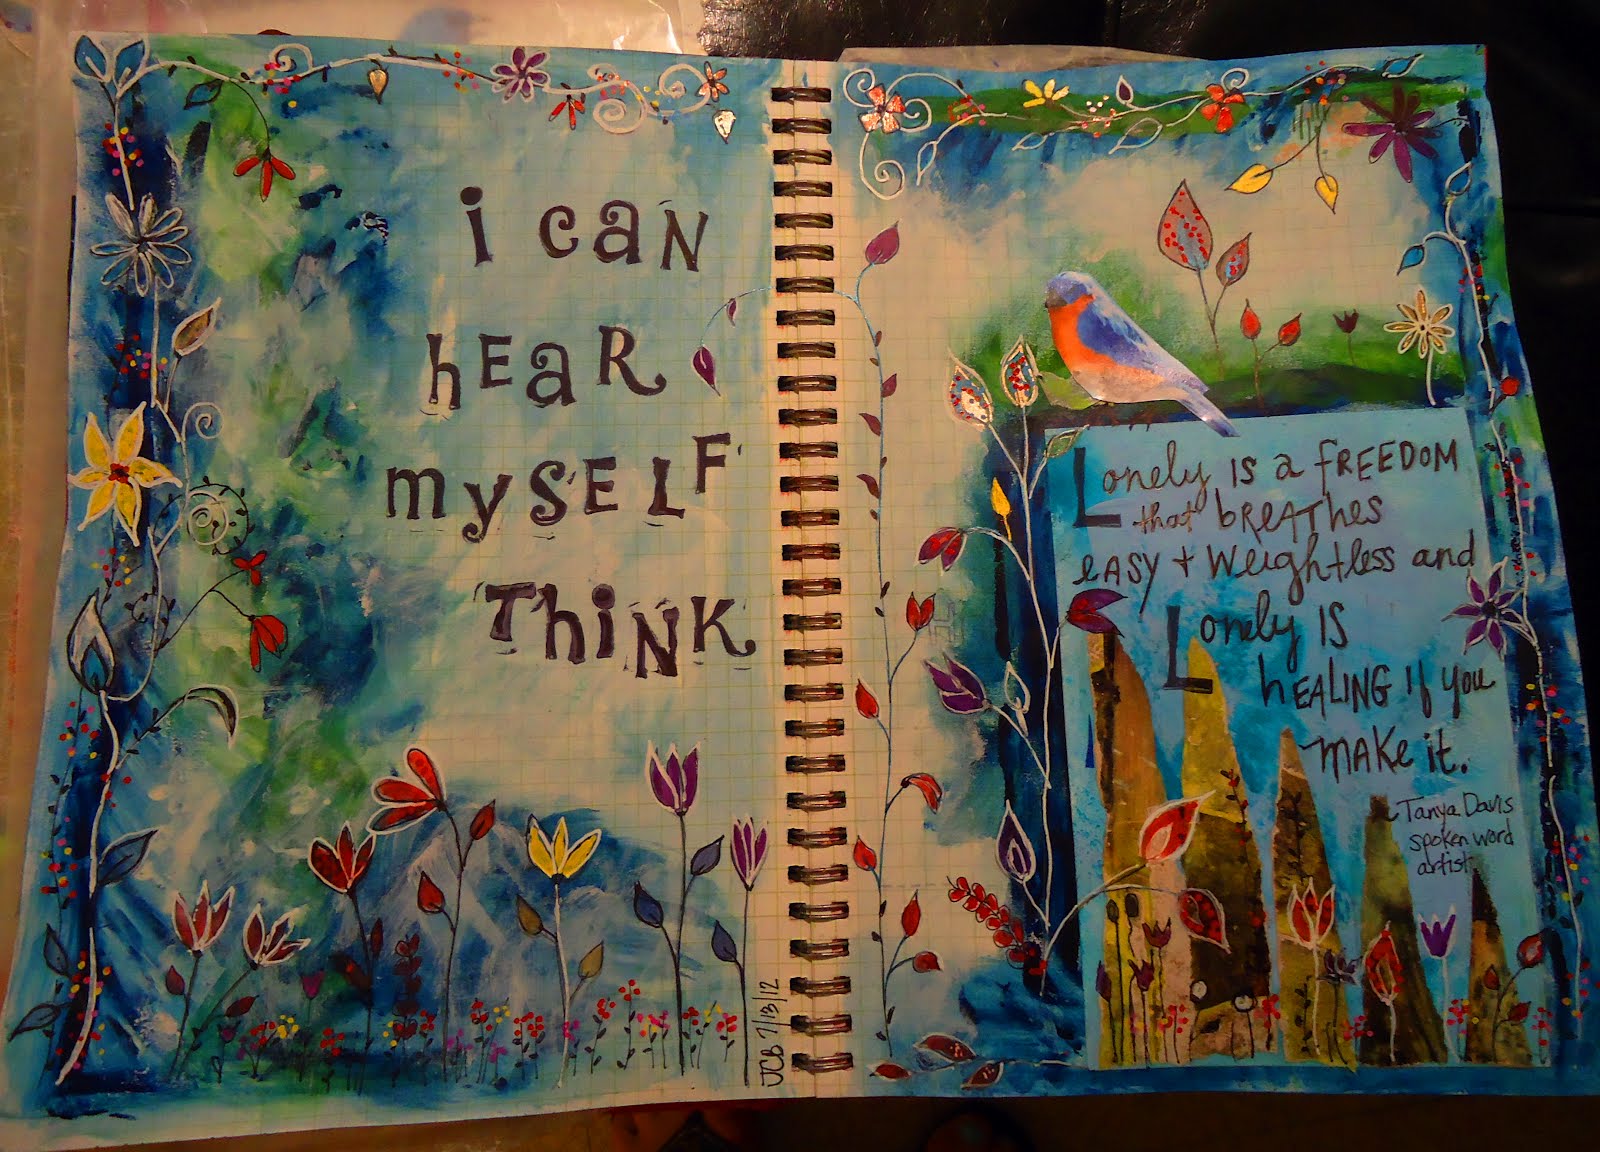 i can
hEaR
mySELF
ThiNK
JCB 7/13/12
Lonely is a FREEDOM
that bREATHES
EASY + Weightless and
Lonely IS
hEALING if you
MAKE it.
Tanya Davis
spoken word
artist